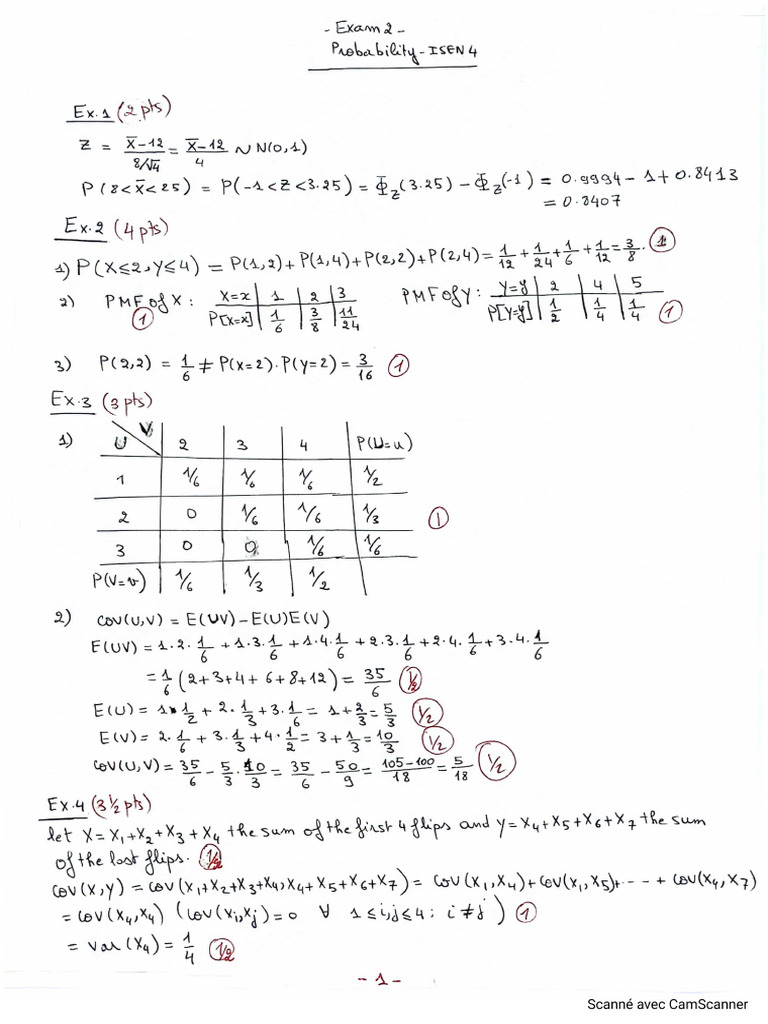 - Exam 2 -
Probability - ISEN 4
Ex.1 (2 pts)
Z = (X̄-12)/(8/√4) = (X̄-12)/4 ~ N(0,1)
P(8<X̄<25) = P(-1<Z<3.25) = Φ_Z(3.25) - Φ_Z(-1) = 0.9994 - 1 + 0.8413
= 0.8407
Ex.2 (4 pts)
1) P(X≤2, Y≤4) = P(1,2) + P(1,4) + P(2,2) + P(2,4) = 1/12 + 1/24 + 1/6 + 1/12 = 3/8. 1
2) PMF of X: X=x 1 2 3 PMF of Y: Y=y 2 4 5
1 P[X=x] 1/6 3/8 11/24 P[Y=y] 1/2 1/4 1/4 1
3) P(2,2) = 1/6 ≠ P(X=2).P(Y=2) = 3/16 1
Ex.3 (3 pts)
1) U V 2 3 4 P(U=u)
1 1/6 1/6 1/6 1/2
2 0 1/6 1/6 1/3 1
3 0 0 1/6 1/6
P(V=v) 1/6 1/3 1/2
2) cov(U,V) = E(UV) - E(U)E(V)
E(UV) = 1.2.1/6 + 1.3.1/6 + 1.4.1/6 + 2.3.1/6 + 2.4.1/6 + 3.4.1/6
= 1/6 (2+3+4+6+8+12) = 35/6 1/2
E(U) = 1.1/2 + 2.1/3 + 3.1/6 = 1 + 2/3 = 5/3 1/2
E(V) = 2.1/6 + 3.1/3 + 4.1/2 = 3 + 1/3 = 10/3 1/2
cov(U,V) = 35/6 - 5/3.10/3 = 35/6 - 50/9 = (105-100)/18 = 5/18 1/2
Ex.4 (3 1/2 pts)
let X = X₁+X₂+X₃+X₄ the sum of the first 4 flips and Y = X₄+X₅+X₆+X₇ the sum
of the last flips. 1/2
cov(X,Y) = cov(X₁+X₂+X₃+X₄, X₄+X₅+X₆+X₇) = cov(X₁,X₄) + cov(X₁,X₅) + --- + cov(X₄,X₇)
= cov(X₄,X₄) (cov(Xi,Xj) = 0 ∀ 1≤i,j≤4 : i≠j) 1
= var(X₄) = 1/4 1/2
- 1 -
Scanné avec CamScanner